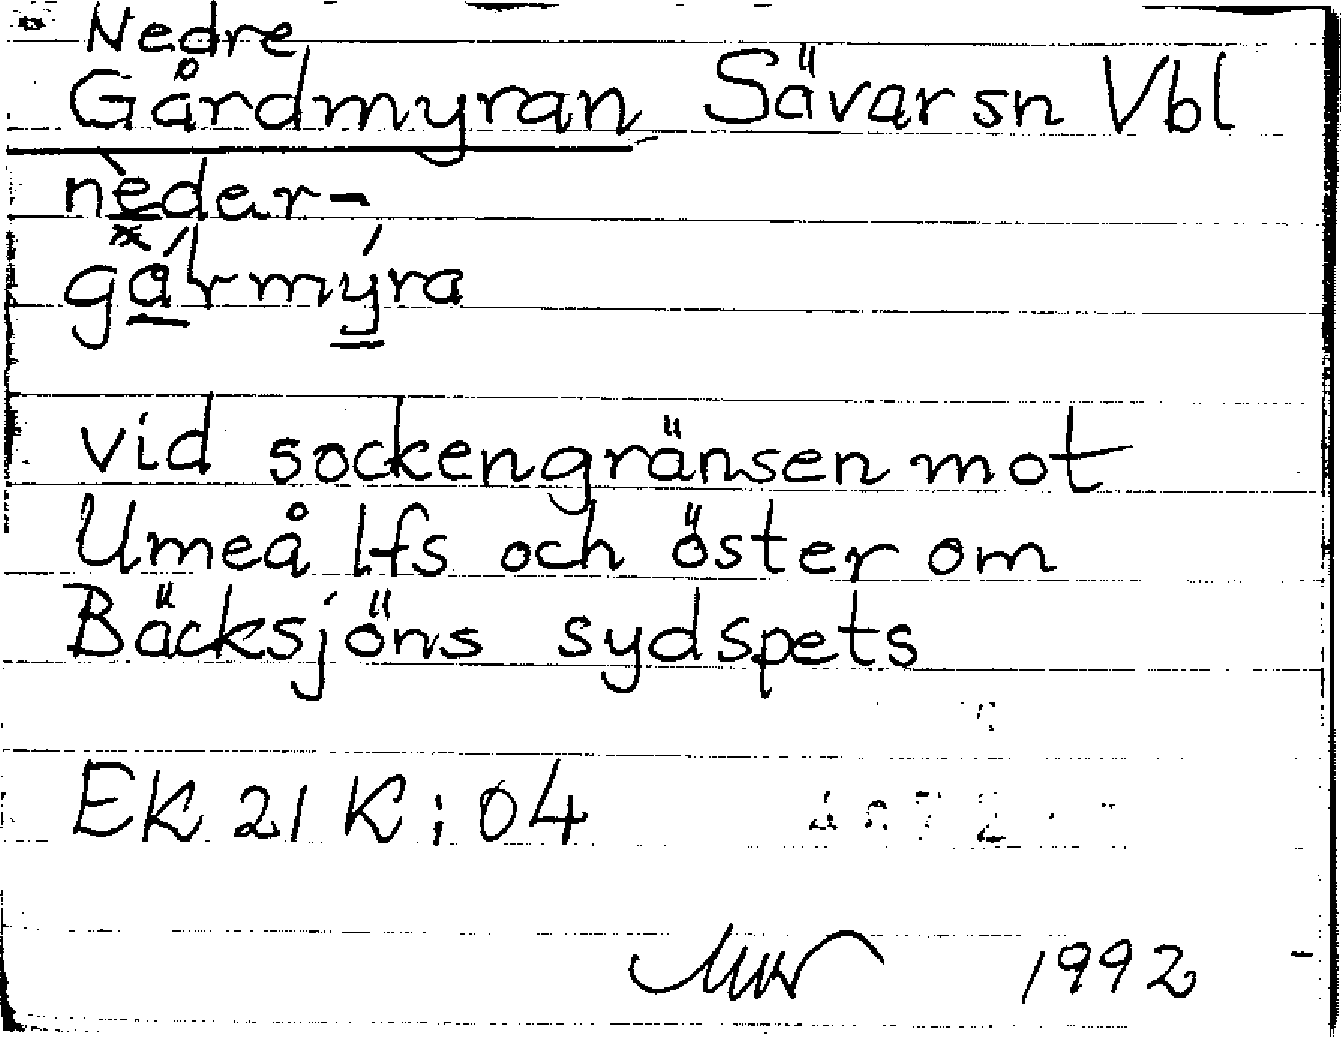 Nedre
Gårdmyran Sävar sn Vbl
nèdar-
gármýra
vid sockengränsen mot
Umeå lfs och öster om
Bäcksjöns sydspets
EK 21 K : 04
1992